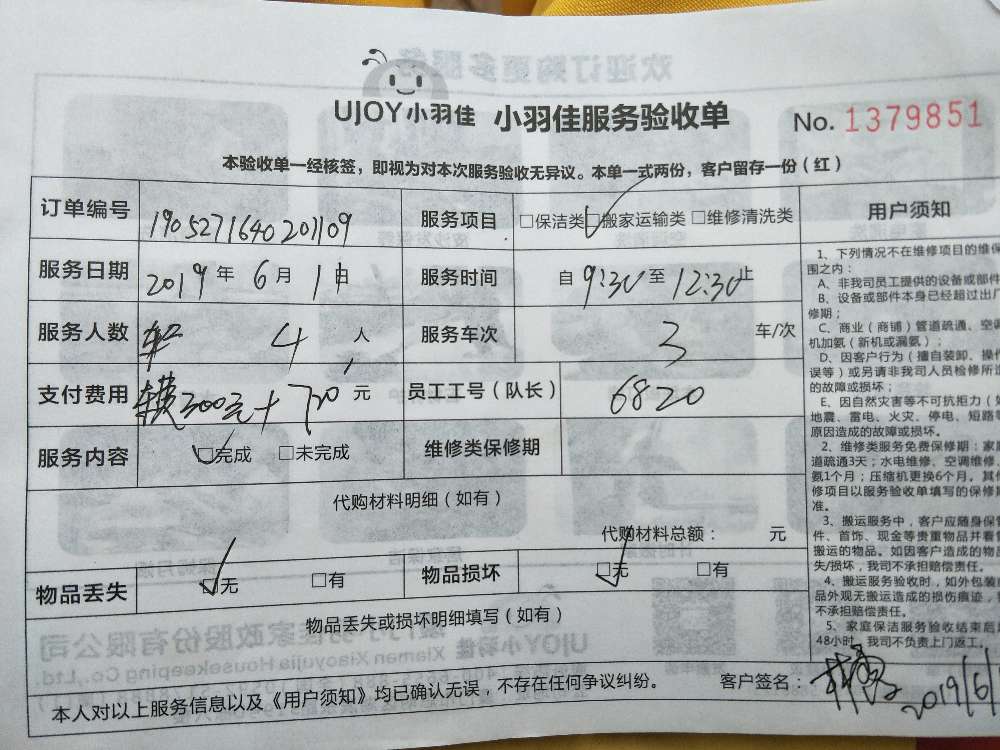 UJOY小羽佳 小羽佳服务验收单 No. 1379851
本验收单一经核签，即视为对本次服务验收无异议。本单一式两份，客户留存一份（红）
订单编号 1905271640201109 服务项目 □保洁类 □搬家运输类 □维修清洗类
服务日期 2019年 6月 1日 服务时间 自 9:30 至 12:30 止
服务人数 4 人 服务车次 3 车/次
支付费用 300元+720 元 员工工号（队长） 6820
服务内容 □完成 □未完成 维修类保修期
代购材料明细（如有）
代购材料总额： 元
物品丢失 □无 □有 物品损坏 □无 □有
物品丢失或损坏明细填写（如有）
本人对以上服务信息以及《用户须知》均已确认无误，不存在任何争议纠纷。 客户签名： 2019/6/1
用户须知
1、下列情况不在维修项目的维保
围之内：
A、非我司员工提供的设备或部件
B、设备或部件本身已经超过出厂
修期；
C、商业（商铺）管道疏通、空
机加氨（新机或漏氨）；
D、因客户行为（擅自装卸、操作
误等）或另请非我司人员检修所
的故障或损坏；
E、因自然灾害等不可抗拒力（如
地震、雷电、火灾、停电、短路
原因造成的故障或损坏。
2、维修类服务免费保修期：家
道疏通3天；水电维修、空调维修、
氨1个月；压缩机更换6个月。其
修项目以服务验收单填写的保修
准。
3、搬运服务中，客户应随身保
件、首饰、现金等贵重物品并看
搬运的物品。如因客户造成的物
失/损坏，我司不承担赔偿责任。
4、搬运服务验收时，如外包装
品外观无搬运造成的损伤痕迹，
不承担赔偿责任。
5、家庭保洁服务验收结束后
48小时，我司不负责上门返工。